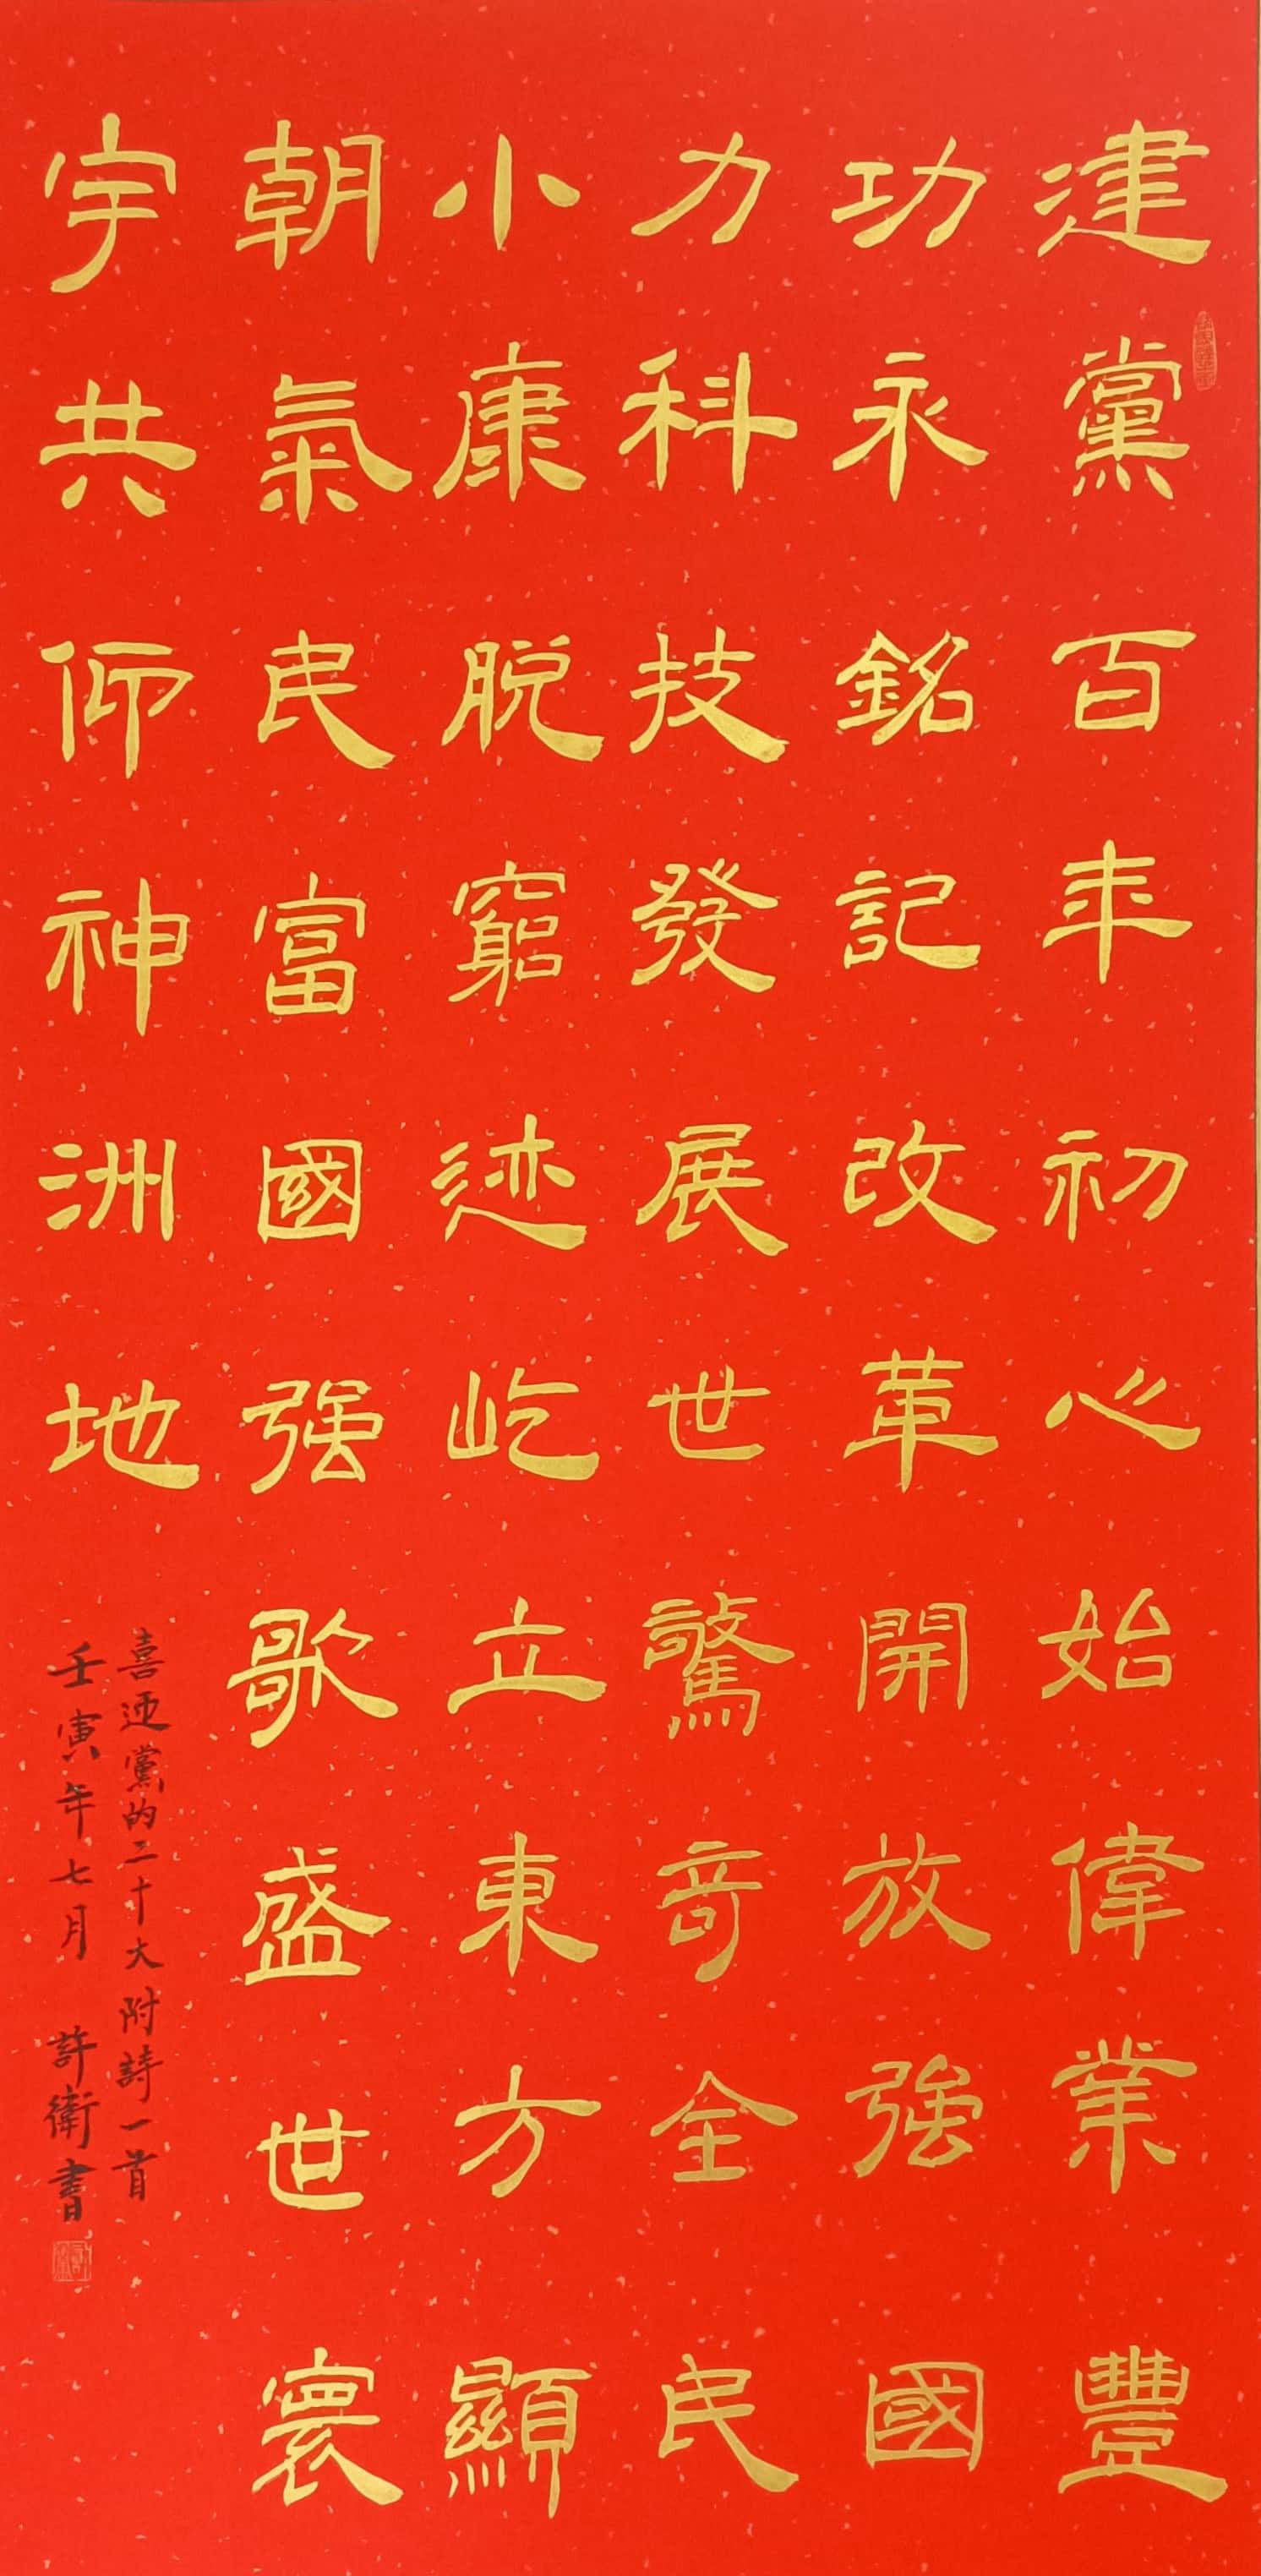 建黨百年初心始偉業豐
功永銘記改革開放強國
力科技發展世驚奇全民
小康脱窮迹屹立東方顯
朝氣民富國强歌盛世寰
宇共仰神洲地
喜迎黨的二十大附詩一首
壬寅年七月 許衛書